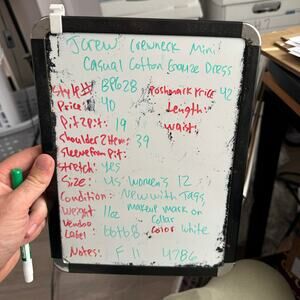 JCrew Crewneck Mini
Casual Cotton Gauze Dress
Style# BP628 Poshmark Price 42
Price: 40 Length:
Pit2Pit: 19 waist:
Shoulder2Hem: 39
Sleeve from Pit:
Stretch: yes
Size: US Women's 12
Condition: New with Tags,
makeup mark on
Weight 11oz Collar
Vendoo
Label: 66768 Color White
Notes: F 11 4786